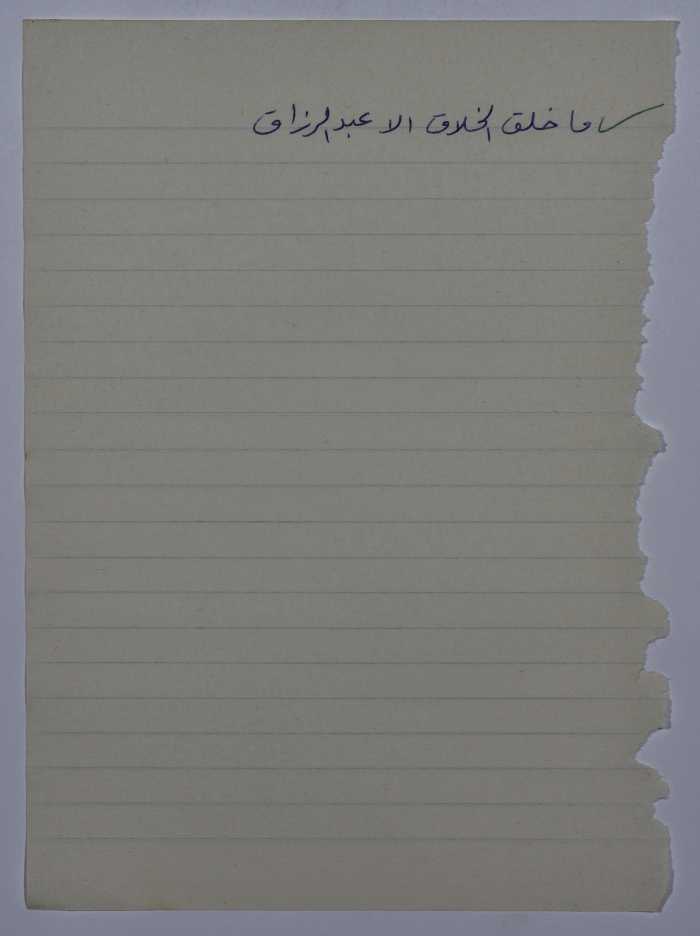 ما خلق الخلاق الا عبد الرزاق